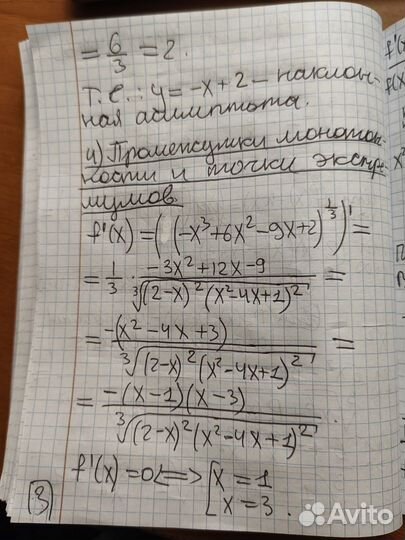 = 6/3 = 2.
Т.е.: y = -x + 2 - наклон-
ная асимптота.
4) Промежутки монотон-
ности и точки экстре-
мумов.
f'(x) = ((-x³+6x²-9x+2)^(1/3))' =
= 1/3 · (-3x²+12x-9)/∛((2-x)²(x²-4x+1)²) =
= -(x²-4x+3)/∛((2-x)²(x²-4x+1)²) =
= -(x-1)(x-3)/∛((2-x)²(x²-4x+1)²).
f'(x)=0 <=> [x = 1
x = 3.
3
f'(
f(x
x²
Avito